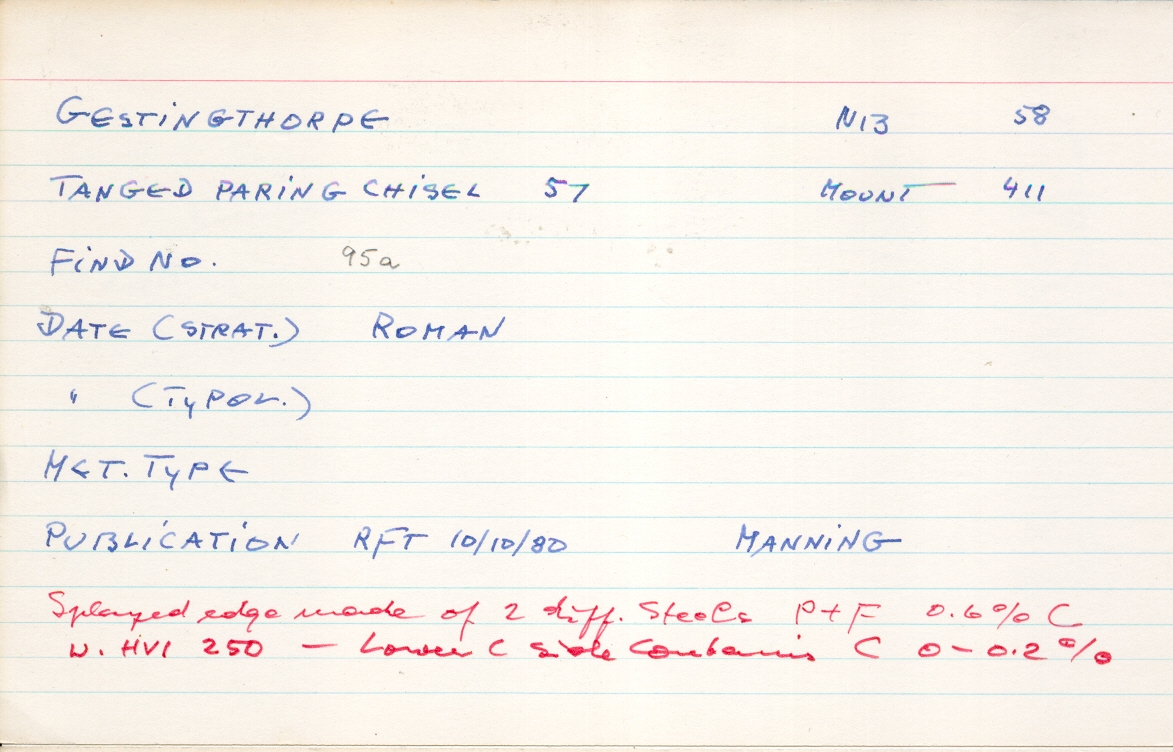 GESTINGTHORPE N13 58
TANGED PARING CHISEL 57 MOUNT 411
FIND NO. 95a
DATE (STRAT.) ROMAN
" (TYPOL.)
MET. TYPE
PUBLICATION RFT 10/10/80 MANNING
Splayed edge made of 2 diff. Steels P+F 0.6% C
w. HV1 250 — Lower C side Contains C 0-0.2%